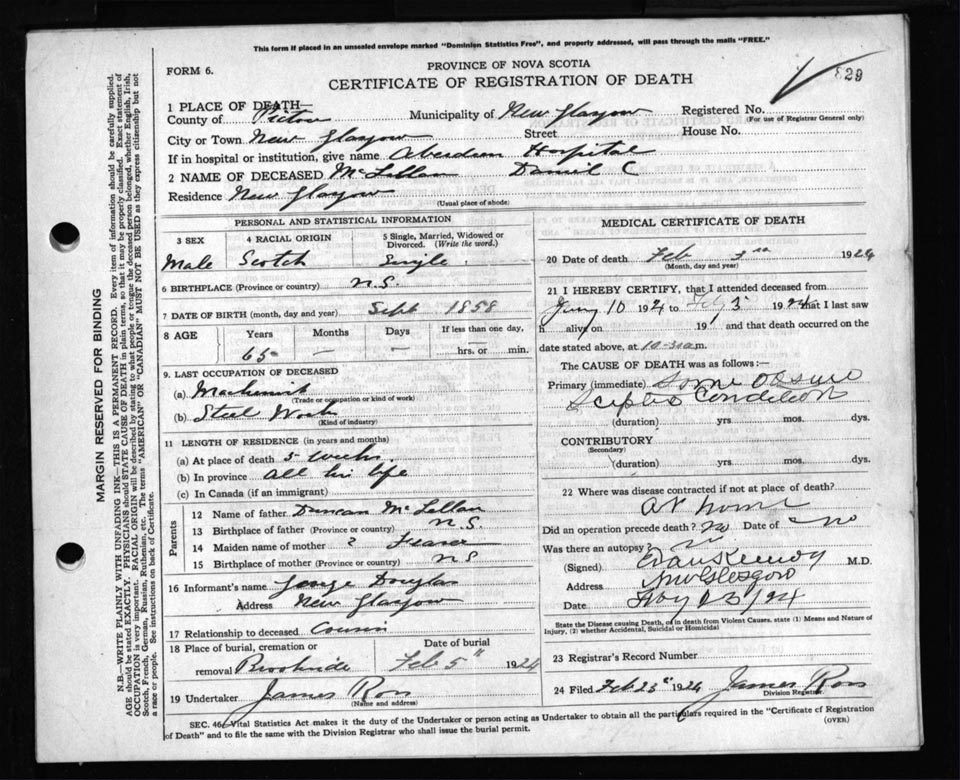 This form if placed in an unsealed envelope marked "Dominion Statistics Free", and properly addressed, will pass through the mails "FREE."
PROVINCE OF NOVA SCOTIA
FORM 6.
CERTIFICATE OF REGISTRATION OF DEATH
829
1 PLACE OF DEATH—
County of Pictou Municipality of New Glasgow Registered No.
(For use of Registrar General only)
City or Town New Glasgow Street House No.
If in hospital or institution, give name Aberdeen Hospital
2 NAME OF DECEASED McLellan Daniel C
Residence New Glasgow
(Usual place of abode)
PERSONAL AND STATISTICAL INFORMATION
3 SEX 4 RACIAL ORIGIN 5 Single, Married, Widowed or Divorced. (Write the word.)
Male Scotch Single
6 BIRTHPLACE (Province or country) N.S.
7 DATE OF BIRTH (month, day and year) Sept 1858
8 AGE Years Months Days If less than one day,
65 — — hrs. or min.
9. LAST OCCUPATION OF DECEASED
(a) Machinist
(Trade or occupation or kind of work)
(b) Steel Works
(Kind of industry)
11 LENGTH OF RESIDENCE (in years and months)
(a) At place of death 5 weeks
(b) In province all his life
(c) In Canada (if an immigrant)
Parents
12 Name of father Duncan McLellan
13 Birthplace of father (Province or country) N.S.
14 Maiden name of mother ? Fraser
15 Birthplace of mother (Province or country) N.S
16 Informant's name George Douglas
Address New Glasgow
17 Relationship to deceased Cousin
18 Place of burial, cremation or removal Date of burial
Brookside Feb 5" 1924
19 Undertaker James Ross
(Name and address)
MEDICAL CERTIFICATE OF DEATH
20 Date of death Feb 3rd 1924
(Month, day and year)
21 I HEREBY CERTIFY, that I attended deceased from
10 1924 to Feb 3 1924 that I last saw
h alive on 191 and that death occurred on the
date stated above, at 10-30 a m.
The CAUSE OF DEATH was as follows:—
Primary (immediate) Some obscure
Septic Condition
(duration) yrs. mos. dys.
CONTRIBUTORY
(Secondary)
(duration) yrs. mos. dys.
22 Where was disease contracted if not at place of death?
At home
Did an operation precede death? no Date of no
Was there an autopsy? no
(Signed) Evan Kennedy M.D.
Address New Glasgow
Date 23/24
State the Disease causing Death, or in death from Violent Causes, state (1) Means and Nature of
Injury, (2) whether Accidental, Suicidal or Homicidal
23 Registrar's Record Number
24 Filed Feb 23rd 1924 James Ross
Division Registrar
SEC. 46, Vital Statistics Act makes it the duty of the Undertaker or person acting as Undertaker to obtain all the particulars required in the "Certificate of Registration
of Death" and to file the same with the Division Registrar who shall issue the burial permit.
(OVER)
MARGIN RESERVED FOR BINDING
N.B.—WRITE PLAINLY WITH UNFADING INK—THIS IS A PERMANENT RECORD. Every item of information should be carefully supplied.
AGE should be stated EXACTLY. PHYSICIANS should STATE CAUSE OF DEATH in plain terms, so that it may be properly classified. Exact statement of
OCCUPATION is very important. RACIAL ORIGIN will be described by stating to what people or tongue the deceased person belonged, whether English, Irish,
Scotch, French, German, Russian, Ruthenian, etc. The terms "AMERICAN" OR "CANADIAN" MUST NOT BE USED as they express citizenship but not
a race or people. See instructions on back of Certificate.